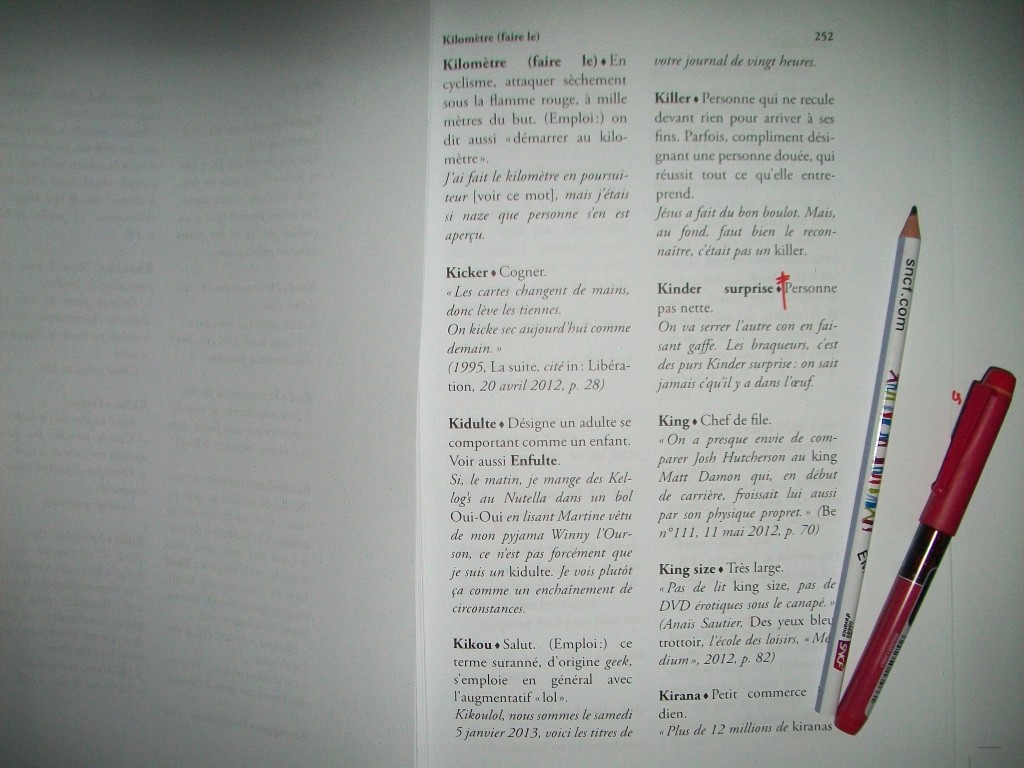 Kilomètre (faire le)
252
Kilomètre (faire le) ♦ En
cyclisme, attaquer sèchement
sous la flamme rouge, à mille
mètres du but. (Emploi :) on
dit aussi « démarrer au kilo-
mètre ».
J'ai fait le kilomètre en poursui-
teur [voir ce mot], mais j'étais
si naze que personne s'en est
aperçu.
Kicker ♦ Cogner.
« Les cartes changent de mains,
donc lève les tiennes.
On kicke sec aujourd'hui comme
demain. »
(1995, La suite, cité in : Libéra-
tion, 20 avril 2012, p. 28)
Kidulte ♦ Désigne un adulte se
comportant comme un enfant.
Voir aussi Enfulte.
Si, le matin, je mange des Kel-
log's au Nutella dans un bol
Oui-Oui en lisant Martine vêtu
de mon pyjama Winny l'Our-
son, ce n'est pas forcément que
je suis un kidulte. Je vois plutôt
ça comme un enchaînement de
circonstances.
Kikou ♦ Salut. (Emploi :) ce
terme suranné, d'origine geek,
s'emploie en général avec
l'augmentatif « lol ».
Kikoulol, nous sommes le samedi
5 janvier 2013, voici les titres de
votre journal de vingt heures.
Killer ♦ Personne qui ne recule
devant rien pour arriver à ses
fins. Parfois, compliment dési-
gnant une personne douée, qui
réussit tout ce qu'elle entre-
prend.
Jésus a fait du bon boulot. Mais,
au fond, faut bien le recon-
naître, c'était pas un killer.
Kinder surprise ♦ Personne
pas nette.
On va serrer l'autre con en fai-
sant gaffe. Les braqueurs, c'est
des purs Kinder surprise : on sait
jamais c'qu'il y a dans l'œuf.
King ♦ Chef de file.
« On a presque envie de com-
parer Josh Hutcherson au king
Matt Damon qui, en début
de carrière, froissait lui aussi
par son physique propret. » (Be
n°111, 11 mai 2012, p. 70)
King size ♦ Très large.
« Pas de lit king size, pas de
DVD érotiques sous le canapé. »
(Anaïs Sautier, Des yeux bleu
trottoir, l'école des loisirs, « Mé
dium », 2012, p. 82)
Kirana ♦ Petit commerce
dien.
« Plus de 12 millions de kiranas
sncf.com
SNCF